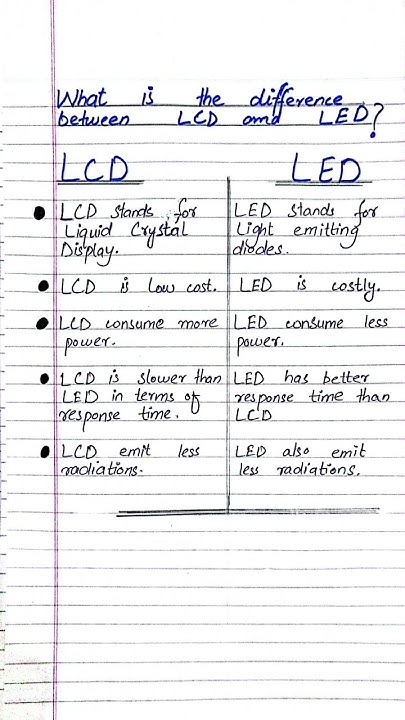 What is the difference
between LCD and LED?
LCD LED
LCD stands for
Liquid Crystal
Display.
LED stands for
Light emitting
diodes.
LCD is low cost.
LED is costly.
LCD consume more
power.
LED consume less
power.
LCD is slower than
LED in terms of
response time.
LED has better
response time than
LCD
LCD emit less
radiations.
LED also emit
less radiations.